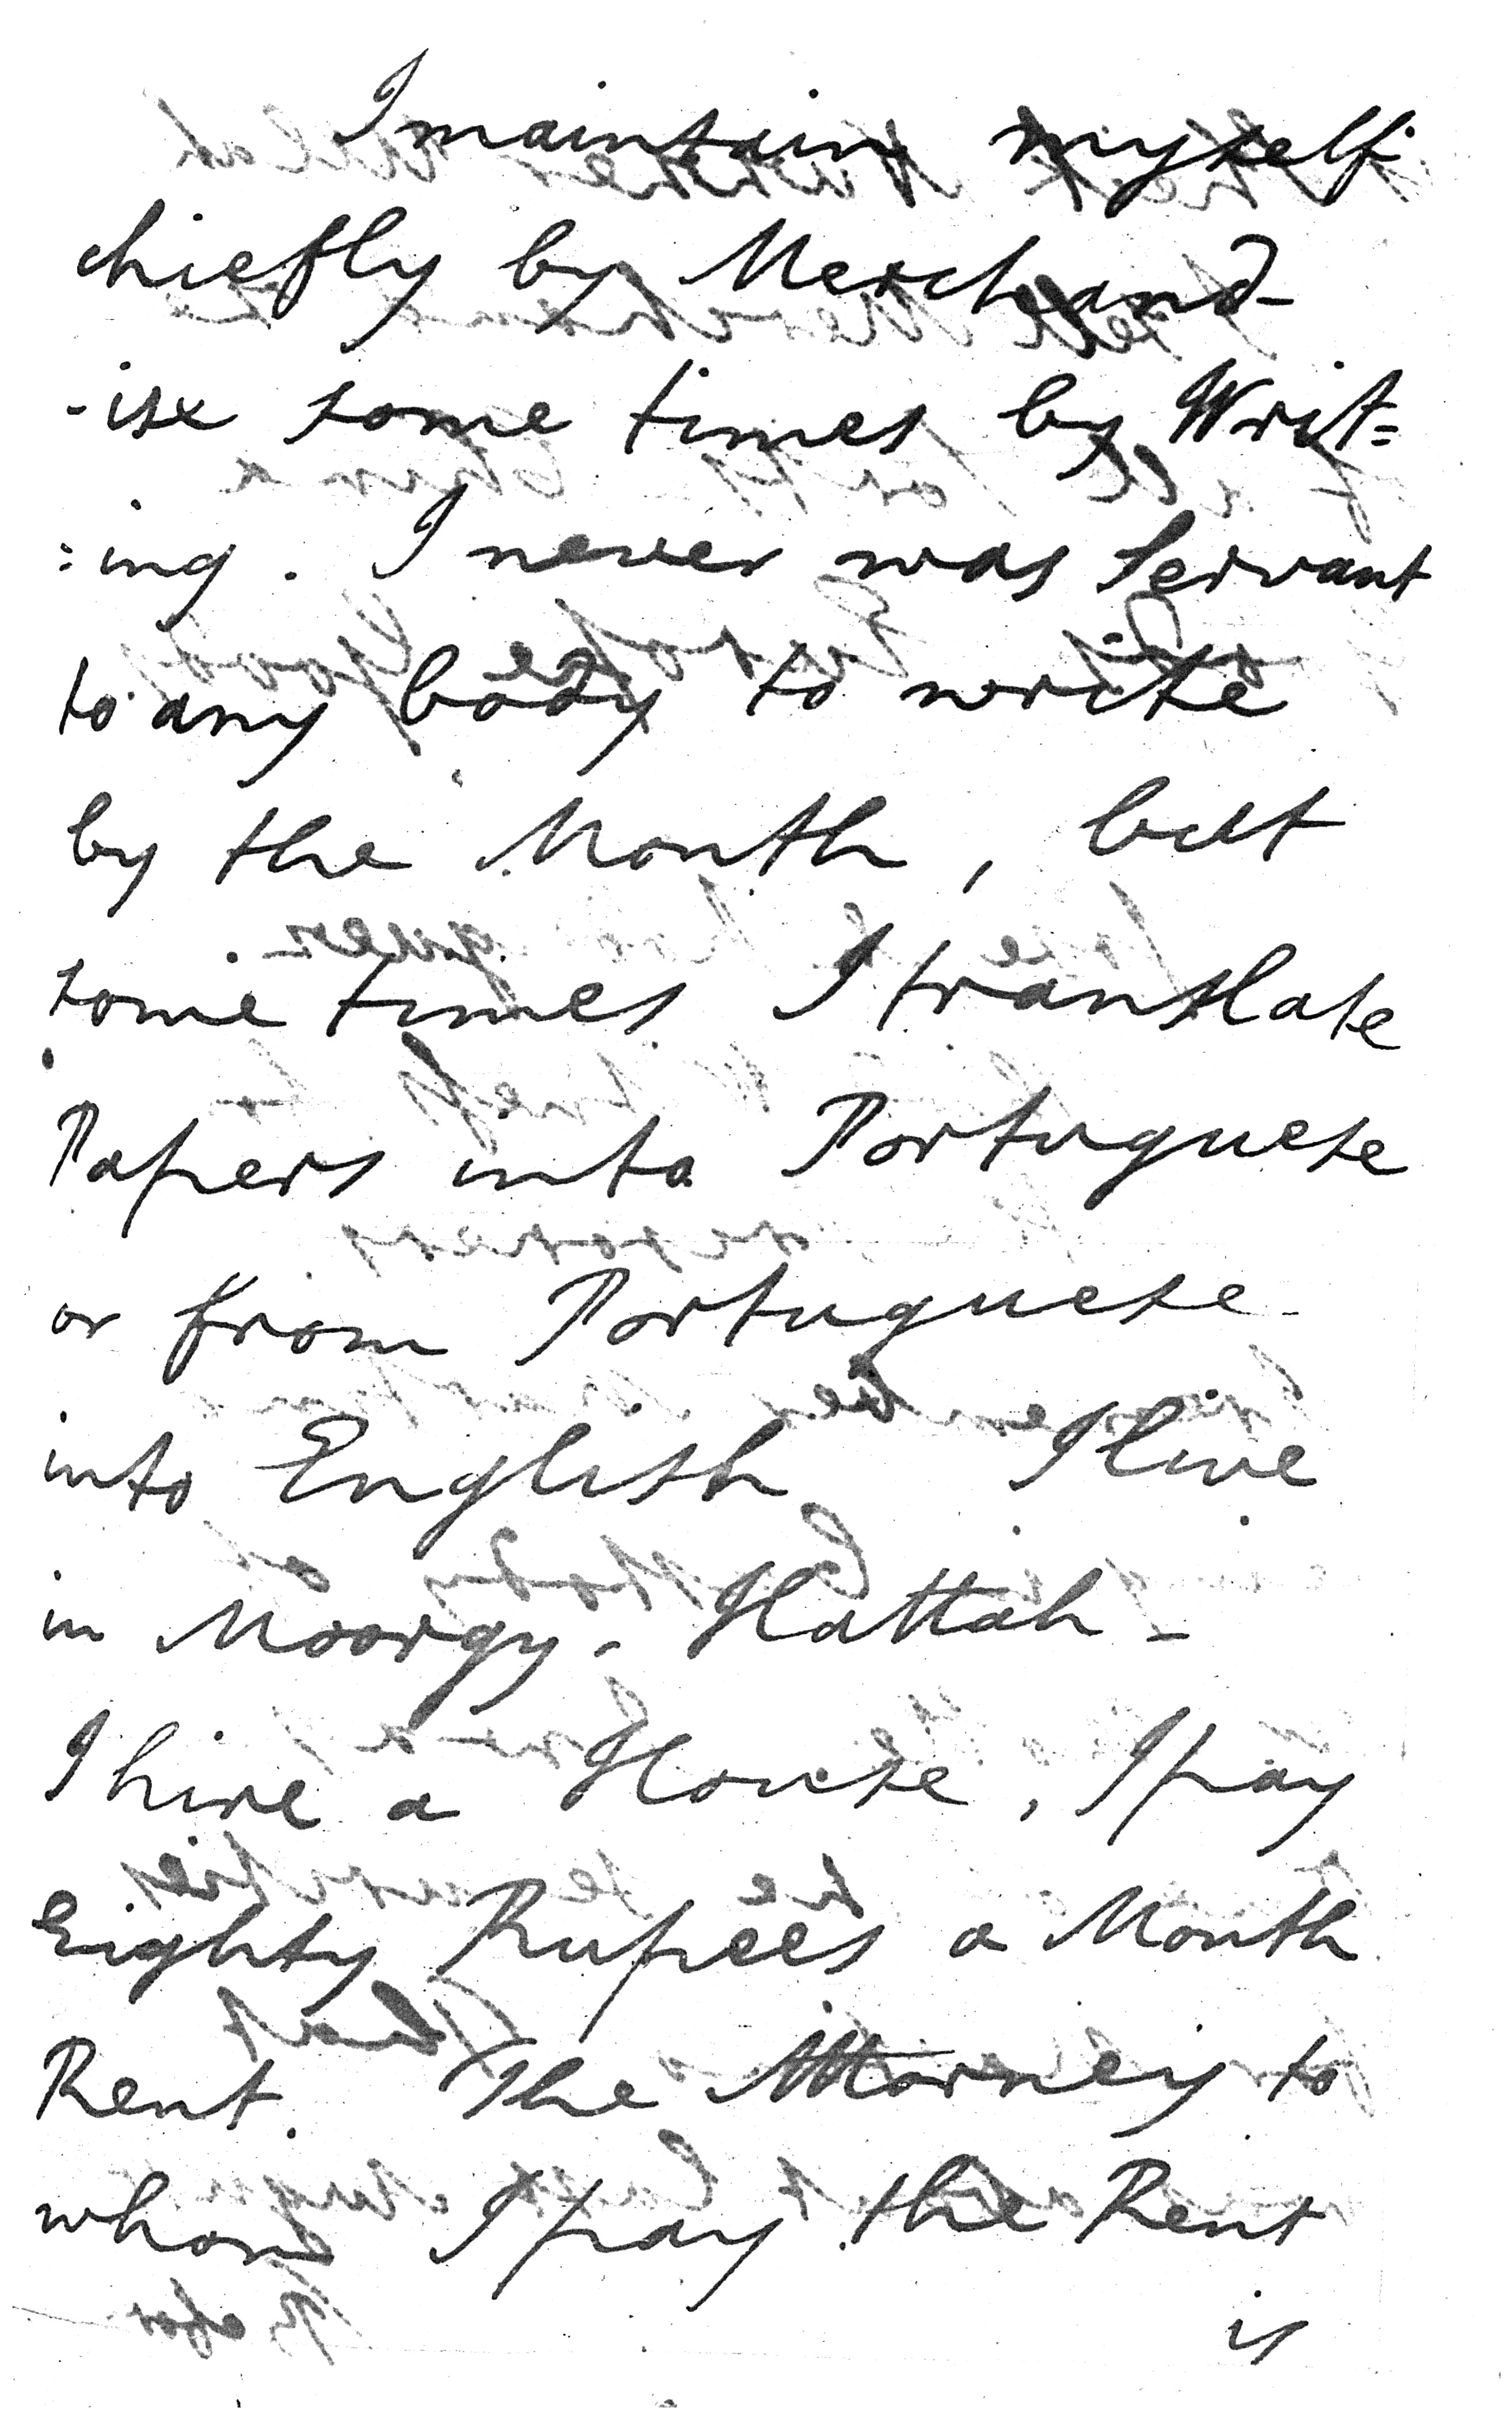 I maintain myself
chiefly by Merchand-
-ise some times by Writ=
:ing. I never was Servant
to any body to write
by the Month, but
some times I translate
Papers into Portuguese
or from Portuguese
into English I live
in Moorgy-Hattah-
I hire a House, I pay
Eighty Rupees a Month
Rent. The Attorney to
whom I pay the Rent
is